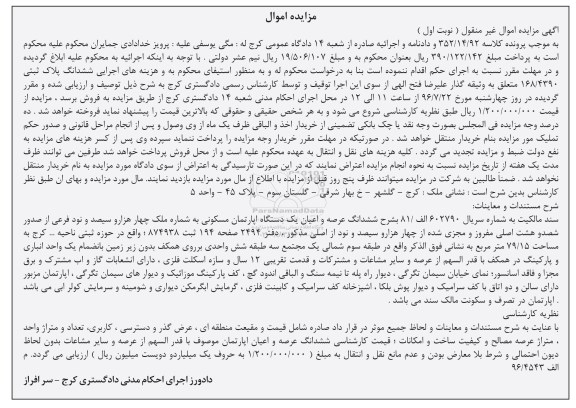 مزایده اموال
آگهی مزایده اموال غیر منقول ( نوبت اول )
به موجب پرونده کلاسه ۳۵۲/۱۴/۹۲ و دادنامه و اجرائیه صادره از شعبه ۱۴ دادگاه عمومی کرج له : مگی یوسفی علیه : پرویز خدادادی جمایران محکوم علیه محکوم
است به پرداخت مبلغ ۳۹۰/۱۲۲/۱۴۲ ریال بعنوان محکوم به و مبلغ ۱۹/۵۰۶/۱۰۷ ریال نیم عشر دولتی . با توجه به اینکه اجرائیه به محکوم علیه ابلاغ گردیده
و در مهلت مقرر نسبت به اجرای حکم اقدام ننموده است بنا به درخواست محکوم له و به منظور استیفای محکوم به و هزینه های اجرایی ششدانگ پلاک ثبتی
۱۶۸/۴۳۹۰ متعلق به وثیقه گذار علیرضا فتح الهی از سوی این اجرا توقیف و توسط کارشناس رسمی دادگستری کرج به شرح ذیل توصیف و ارزیابی شده و مقرر
گردیده در روز چهارشنبه مورخ ۹۶/۷/۲۲ از ساعت ۱۱ الی ۱۲ در محل اجرای احکام مدنی شعبه ۱۴ دادگستری کرج از طریق مزایده به فروش برسد . مزایده از
قیمت ۱/۲۰۰/۰۰۰/۰۰۰ ریال طبق نظریه کارشناسی شروع می شود و به هر شخص حقیقی و حقوقی که بالاترین قیمت را پیشنهاد نماید فروخته خواهد شد . ده
درصد وجه مزایده فی المجلس بصورت وجه نقد یا چک بانکی تضمینی از خریدار اخذ و الباقی ظرف یک ماه از وی وصول و پس از انجام مراحل قانونی و صدور حکم
تملیک مور مزایده بنام خریدار منتقل خواهد شد . در صورتیکه در مهلت مقرر خریدار وجه مزایده را پرداخت ننماید سپرده وی پس از کسر هزینه های مزایده به
نفع دولت ضبط و مزایده تجدید می گردد . کلیه هزینه های نقل و انتقال به عهده محکوم علیه است و از محل فروش پرداخت خواهد شد طرفین می توانند ظرف
مدت یک هفته از تاریخ مزایده نسبت به نحوه انجام مزایده اعتراض نمایند که در این صورت تارسیدگی به اعتراض از سوی دادگاه مورد مزایده به نام خریدار منتقل
نخواهد شد . ضمنا طالبین به شرکت در مزایده میتوانند ظرف پنج روز قبل از مزایده با اطلاع از مال مورد مزایده بازدید نمایند. مال مورد مزایده و بهای ان طبق نظر
کارشناس بدین شرح است : نشانی ملک : کرج – گلشهر – خ بهار شرقی – گلستان سوم – پلاک ۴۵ – واحد ۵
شرح مستندات و معاینات:
سند مالکیت به شماره سریال ۶۰۲۷۹۰ الف /۸۱ بشرح ششدانگ عرصه و اعیان یک دستگاه اپارتمان مسکونی به شماره ملک چهار هزارو سیصد و نود فرعی از صدور
شصدو هشت اصلی مفروز و مجزی شده از چهار هزارو سیصد و نود از اصلی مذکور . ، دفتر: ۲۴۹۴ صفحه ۱۹۴ ثبت ۸۷۴۹۳۸ : واقع در حوزه ثبتی ناحیه ... کرج به
مساحت ۷۹/۱۵ متر مربع به نشانی فوق الذکر واقع در طبقه سوم شمالی یک مجتمع سه طبقه شش واحدی برروی همکف بدون زیر زمین بانضمام یک واحد انباری
و پارکینگ در همکف با قدر السهم از عرصه و سایر مشاعات و مشترکات و قدمت تقریبی ۱۲ سال و سازه اسکلت فلزی ، دارای انشعابات گاز و اب مشترک و برق
مجزا و فاقد اسانسور؛ نمای خیابان سیمان نگرگی ، دیوار راه پله تا نیمه سنگ و الباقی اندود گچ ، کف پارکینگ موزائیک و دیوار های سیمان نگرگی ، اپارتمان مزبور
دارای سالن و دو اتاق با کف سرامیک و دیوار پوش بلکا ، اشپزخانه کف سرامیک و کابینت فلزی ، گرمایش ابگرمکن دیواری و شومینه و سرمایش کولر ابی می باشد
. اپارتمان در تصرف و سکونت مالک سند می باشد .
نظریه کارشناسی
با عنایت به شرح مستندات و معاینات و لحاظ جمیع موثر در قرار داد صادره شامل قیمت و مقیعت منطقه ای ، عرض گذر و دسترسی ، کاربری، تعداد و متراژ واحد
، متراژ عرصه مصالح و کیفیت ساخت و امکانات ؛ قیمت کارشناسی ششدانگ عرصه و اعیان اپارتمان موصوف با قدر السهم از عرصه و سایر مشاعات بدون لحاظ
دیون احتمالی و شرط بلا معارض بودن و عدم مانع نقل و انتقال به مبلغ ( ۱/۲۰۰/۰۰۰/۰۰۰ به حروف یک میلیاردو دویست میلیون ریال ) ارزیابی می گردد. م
الف ۹۶/۴۵۴۳
دادورز اجرای احکام مدنی دادگستری کرج – سر افراز